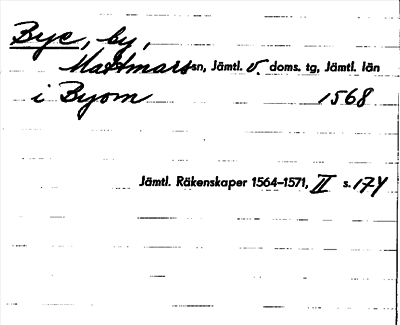 Bye, by,
Mattmars sn, Jämtl. v. doms. tg, Jämtl. län
i Byom 1568
Jämtl. Räkenskaper 1564–1571, II s. 174